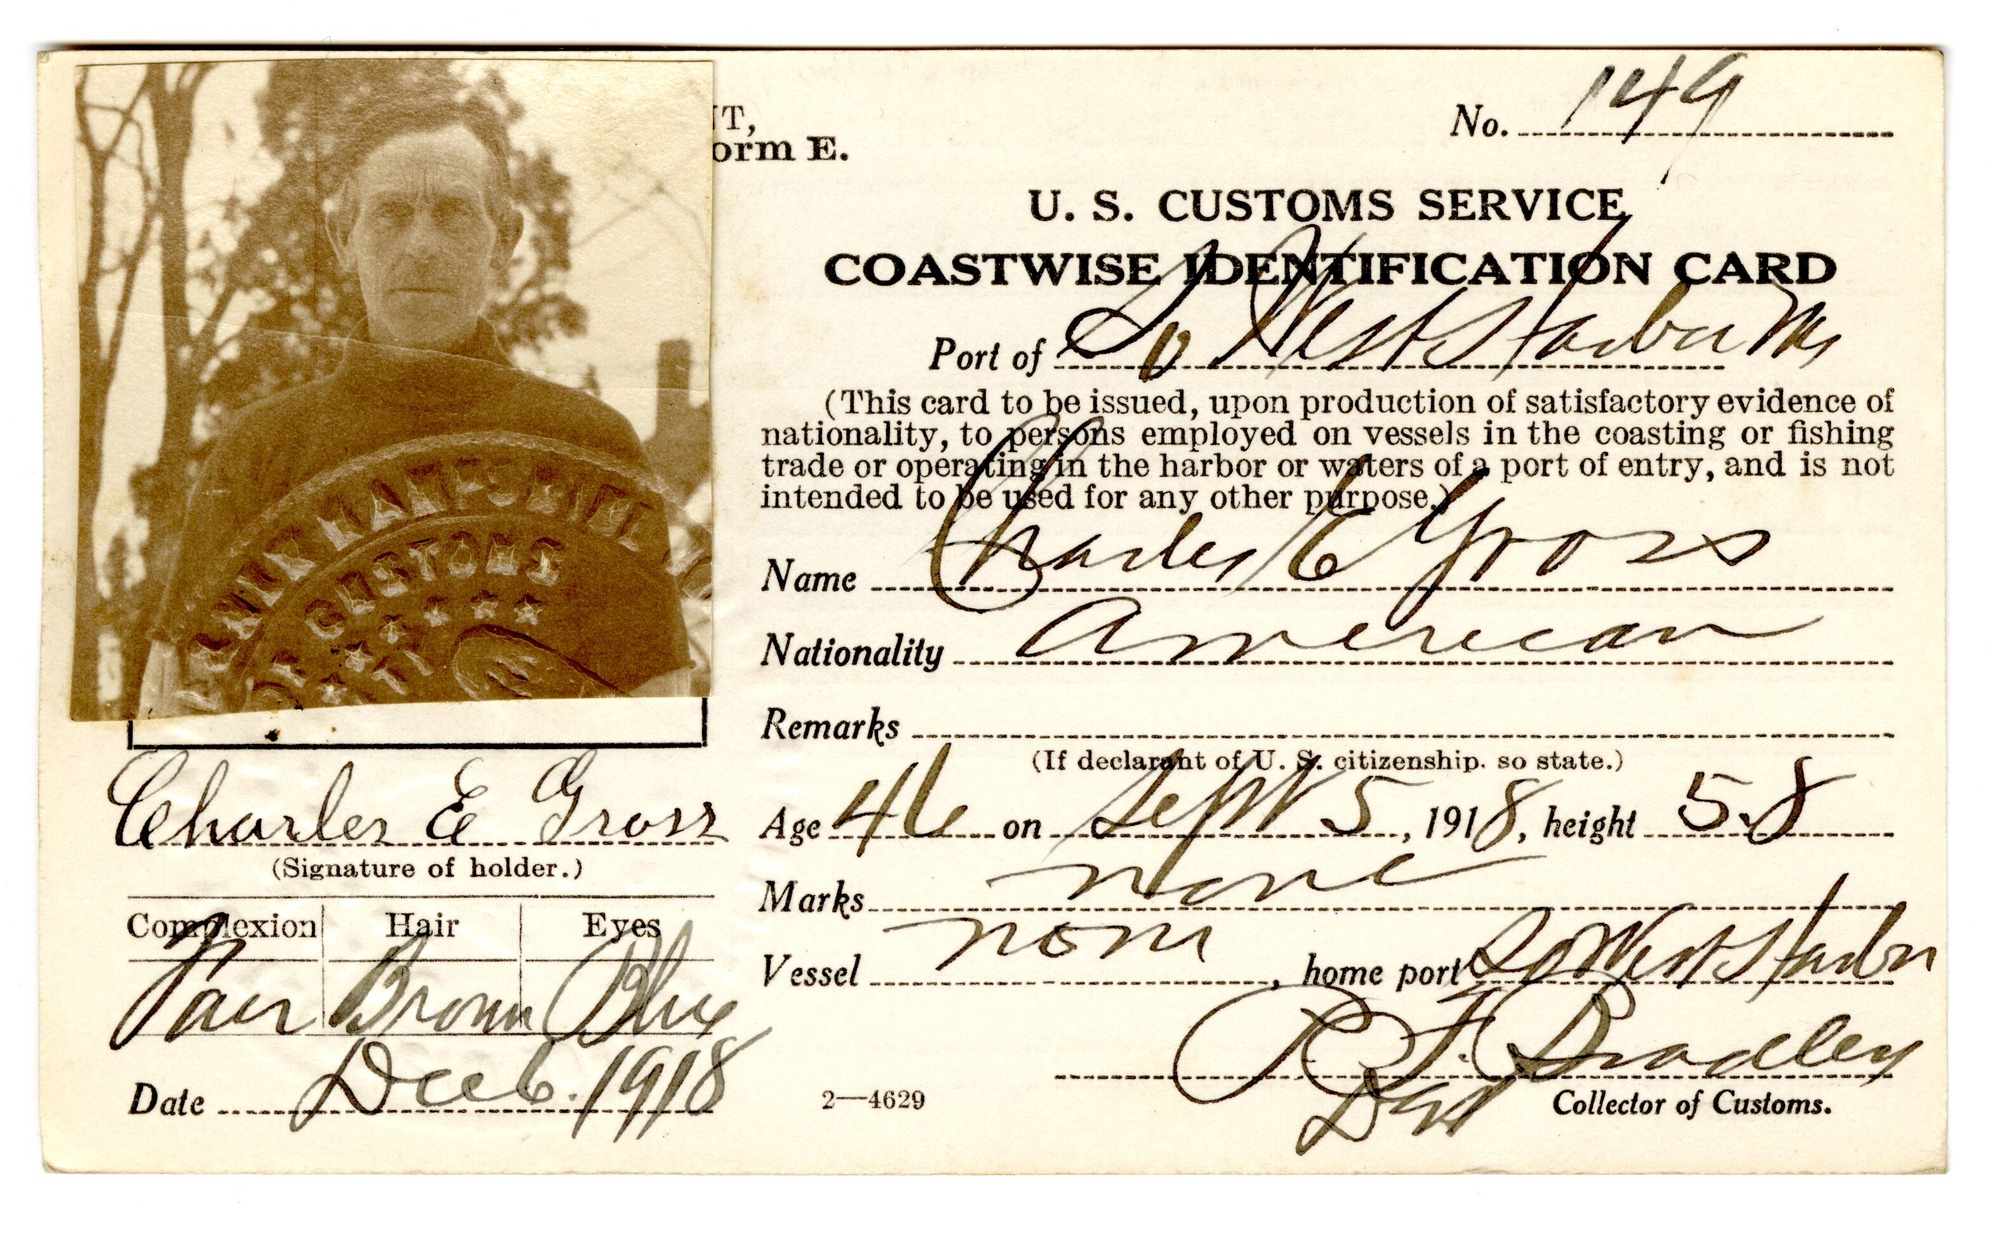 NT,
orm E.
No. 149
U. S. CUSTOMS SERVICE
COASTWISE IDENTIFICATION CARD
Port of So West Harbor Me
(This card to be issued, upon production of satisfactory evidence of
nationality, to persons employed on vessels in the coasting or fishing
trade or operating in the harbor or waters of a port of entry, and is not
intended to be used for any other purpose.)
Name Charles E Gross
Nationality American
Remarks
(If declarant of U. S. citizenship, so state.)
Age 46 on Sept 5, 1918, height 5-8
Marks none
Vessel none, home port So West Harbor
R F. Bradley
Dep Collector of Customs.
2—4629
CUSTOMS
Charles E Gross
(Signature of holder.)
Complexion Hair Eyes
Fair Brown Blue
Date Dec 6. 1918